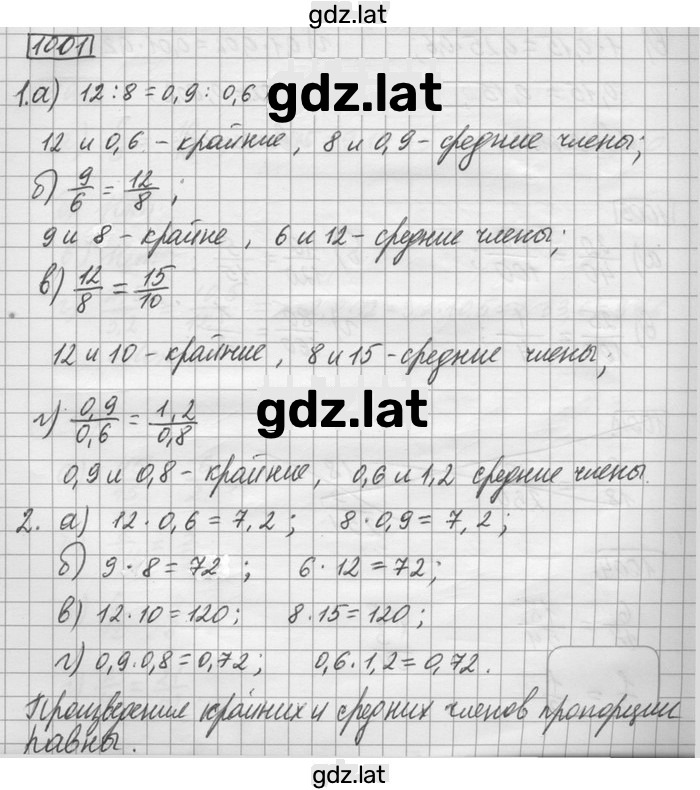 gdz.lat
1001
1.а) 12:8=0,9:0,6
gdz.lat
12 и 0,6 - крайние, 8 и 0,9 - средние члены;
б) 9/6 = 12/8;
9 и 8 - крайне, 6 и 12 - средние члены;
в) 12/8 = 15/10
12 и 10 - крайние, 8 и 15 - средние члены;
gdz.lat
г) 0,9/0,6 = 1,2/0,8
0,9 и 0,8 - крайние, 0,6 и 1,2 средние члены.
2. а) 12·0,6=7,2; 8·0,9=7,2;
б) 9·8=72; 6·12=72;
в) 12·10=120; 8·15=120;
г) 0,9·0,8=0,72; 0,6·1,2=0,72.
Произведения крайних и средних членов пропорции
равны.
gdz.lat